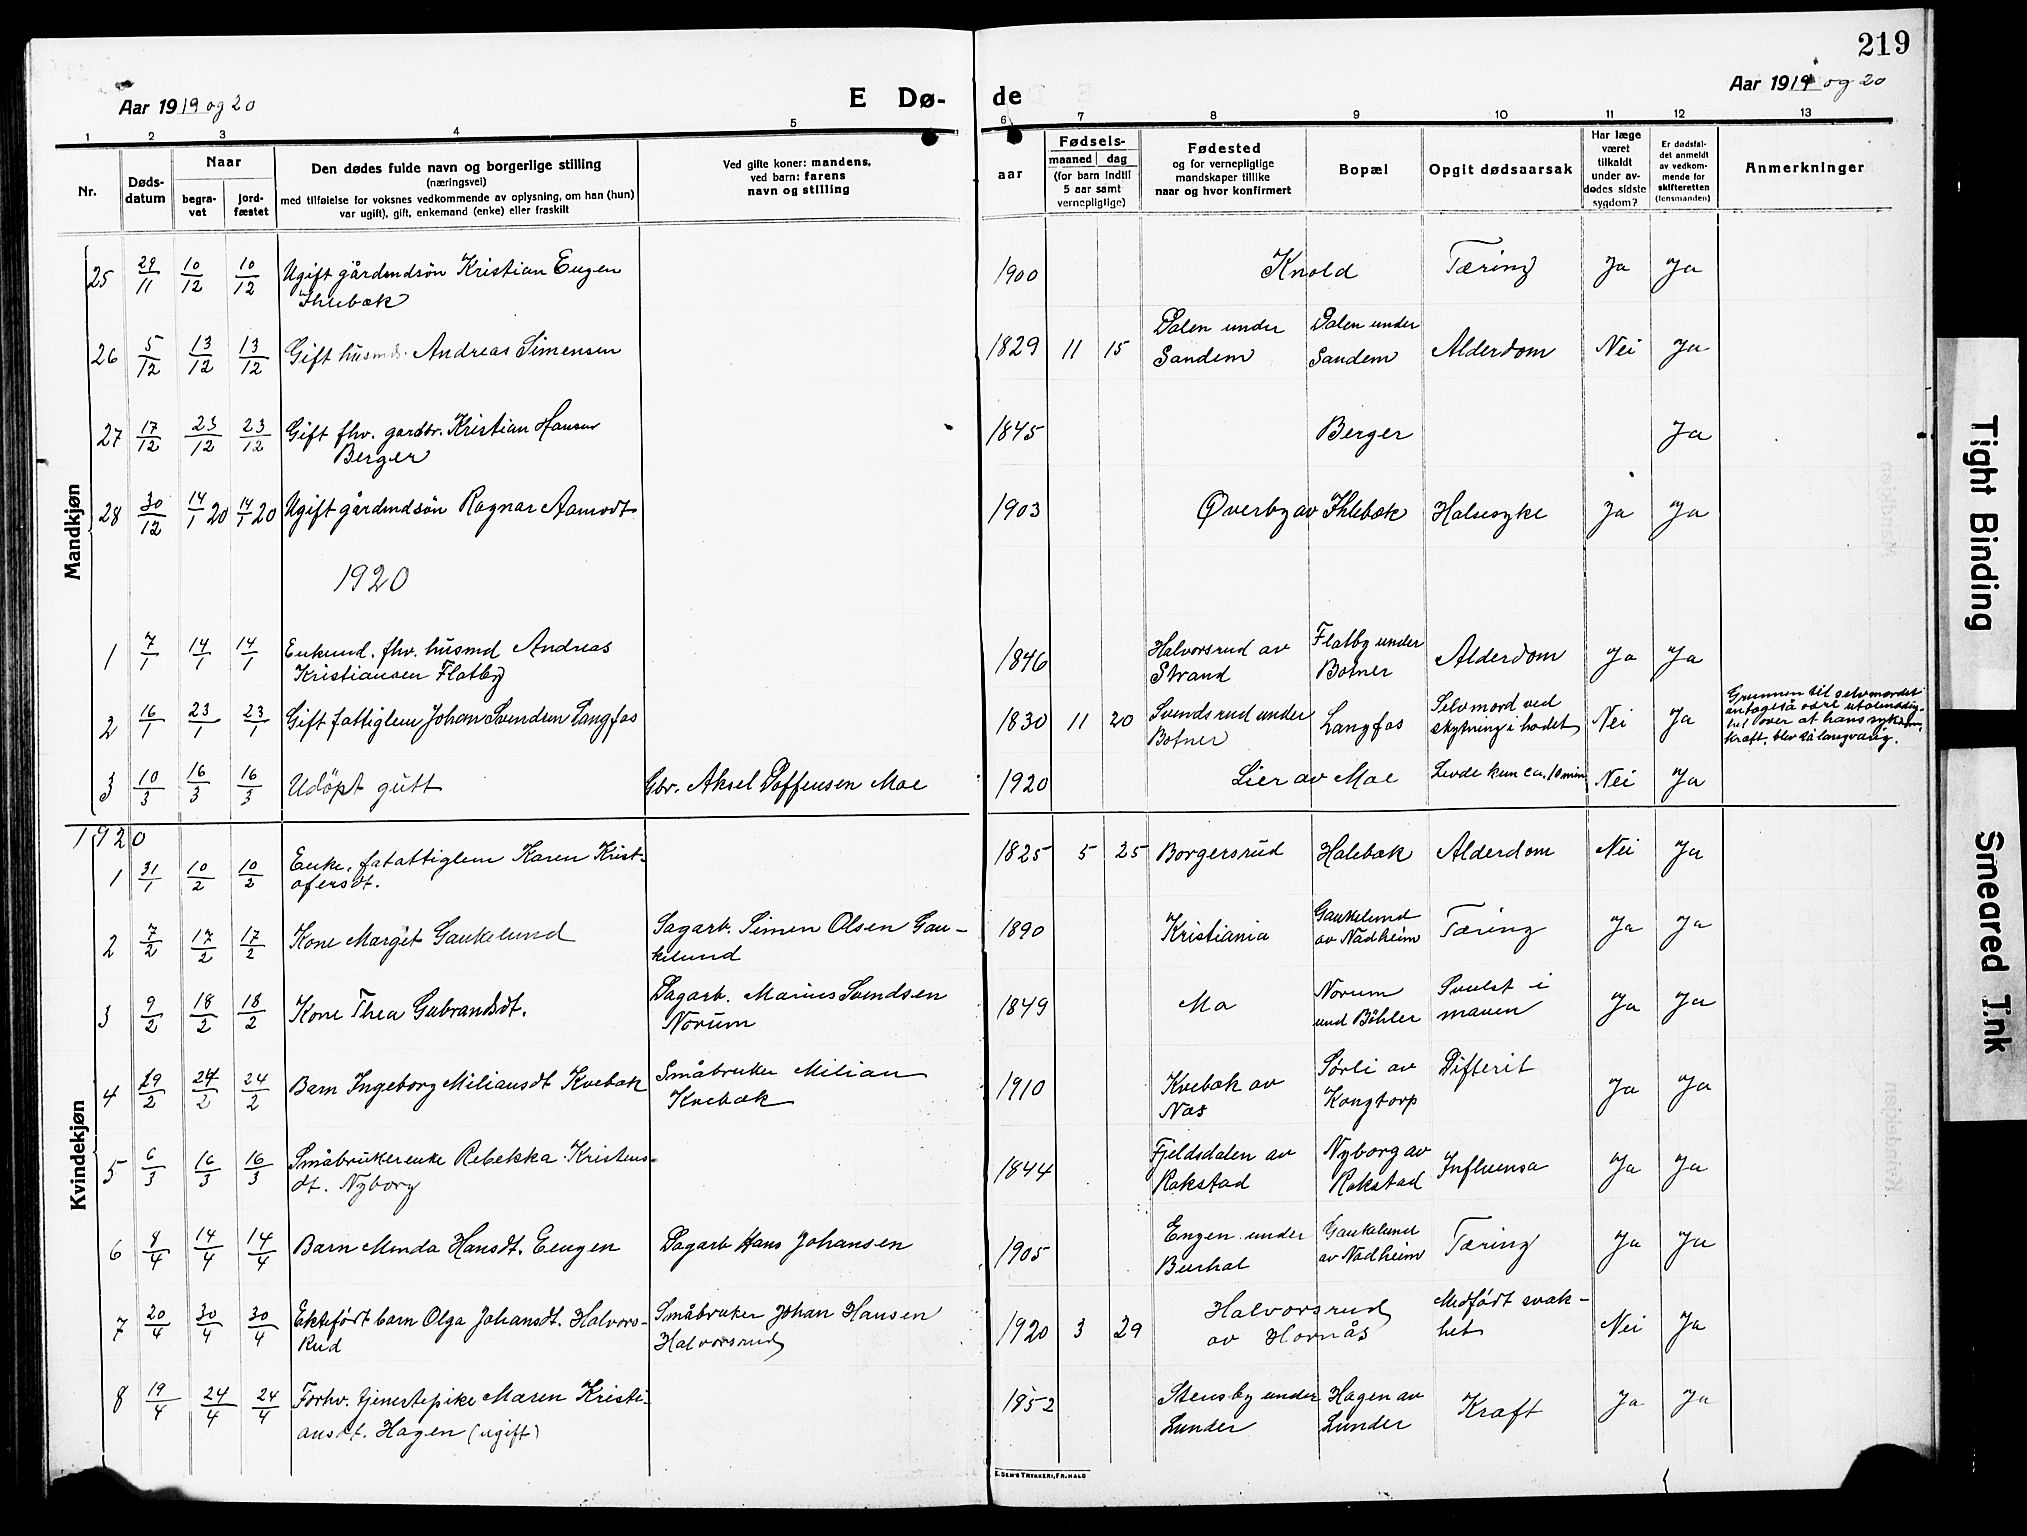 219
Aar 1919 og 20
E Dø-
de
Aar 1919 og 20
1 2 3 4 5 6 7 8 9 10 11 12 13
Nr.
Døds-
datum
Naar
begra-
vet
jord-
fæstet
Den dødes fulde navn og borgerlige stilling
(næringsvei)
med tilføielse for voksnes vedkommende av oplysning, om han (hun)
var ugift), gift, enkemand (enke) eller fraskilt
Ved gifte koner: mandens,
ved barn: farens
navn og stilling
Fødsels-
aar
maaned dag
(for barn indtil
5 aar samt
vernepligtige)
Fødested
og for vernepligtige
mandskaper tillike
naar og hvor konfirmert
Bopæl
Opgit dødsaarsak
Har læge
været
tilkaldt
under av-
dødes sidste
sygdom?
Er dødsfal-
det anmeldt
av vedkom-
mende for
skifteretten
(lensmanden)
Anmerkninger
Mandkjøn
25 29/11 10/12 10/12 Ugift gårdmdsön Kristian Eugen 1900 Knold Tæring Ja Ja
Ihlebæk
26 5/12 13/12 13/12 Gift husmd. Andreas Simensen 1829 11 15 Dalen under Dalen under Alderdom Nei Ja
Sandem Sandem
27 17/12 23/12 23/12 Gift fhv. gardbr. Kristian Hansen 1845 Berger Ja
Berger
28 30/12 14/1 20 14/1 20 Ugift gårdmdsön Ragnar Aamodt 1903 Øverby av Ihlebæk Halsesyke Ja Ja
1920
1 7/1 14/1 14/1 Enkemd. fhv. husmd Andreas 1846 Halvorsrud av Flatby under Alderdom Ja Ja
Kristiansen Flatby Strand Botner
2 16/1 23/1 23/1 Gift fattiglem Johan Svendsen Langfos 1830 11 20 Svendsrud under Langfos Selvmord ved Nei Ja
Botner skytning i hodet
Grunnen til selvmordet
antages å være utålmodig-
het over at hans syk
kraft, blev så langvarig.
3 10/3 16/3 16/3 Udöpt gutt Gbr. Aksel Toffensen Moe 1920 Lier av Moe Levde kun ca. 10 min Nei Ja
1920
Kvindekjøn
1 31/1 10/2 10/2 Enke, fatattiglem Karen Krist- 1825 5 25 Borgersrud Halebæk Alderdom Nei Ja
ofersdt.
2 7/2 17/2 17/2 Kone Margit Gaukelund Dagarb. Simen Olsen Gau- 1890 Kristiania Gaukelund Tæring Ja Ja
kelund av Nadheim
3 9/2 18/2 18/2 Kone Thea Gubrandsdt. Dagarb. Marius Svendsen 1849 Mo Norum Svulst i Ja Ja
Norum und Böhler maven
4 19/2 24/2 24/2 Barn Ingeborg Miliansdt Kvebæk Småbruker Milian 1910 Kvebæk av Sørli av Difterit Ja Ja
Kvebæk Næs Kongtorp
5 6/3 16/3 16/3 Småbrukerenke Rebekka Kristens- 1844 Fjeldsdalen av Nyborg av Influensa Ja Ja
dt. Nyborg Rakstad Rakstad
6 8/4 14/4 14/4 Barn Minda Hansdt. Eengen Dagarb Hans Johansen 1905 Engen under Gaukelund Tæring Ja Ja
Burhol av Nadheim
7 20/4 30/4 30/4 Ektefödt barn Olga Johansdt. Halvors- Småbruker Johan Hansen 1920 3 29 Halvorsrud Medfödt svak- Nei Ja
Rud Halvorsrud av Hornås het
8 19/4 24/4 24/4 Forhv. tjenestepike Maren Kristi- 1852 Stensby under Hagen av Kræft Ja Ja
ansdt. Hagen (ugift) Lunder Lunder
E. SEM'S TRYKKERI, FR.HALD
Tight Binding
Smeared Ink